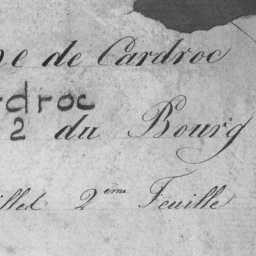 ne de Cardroc
rdroc
2 du Bourg
illed 2eme Feuille